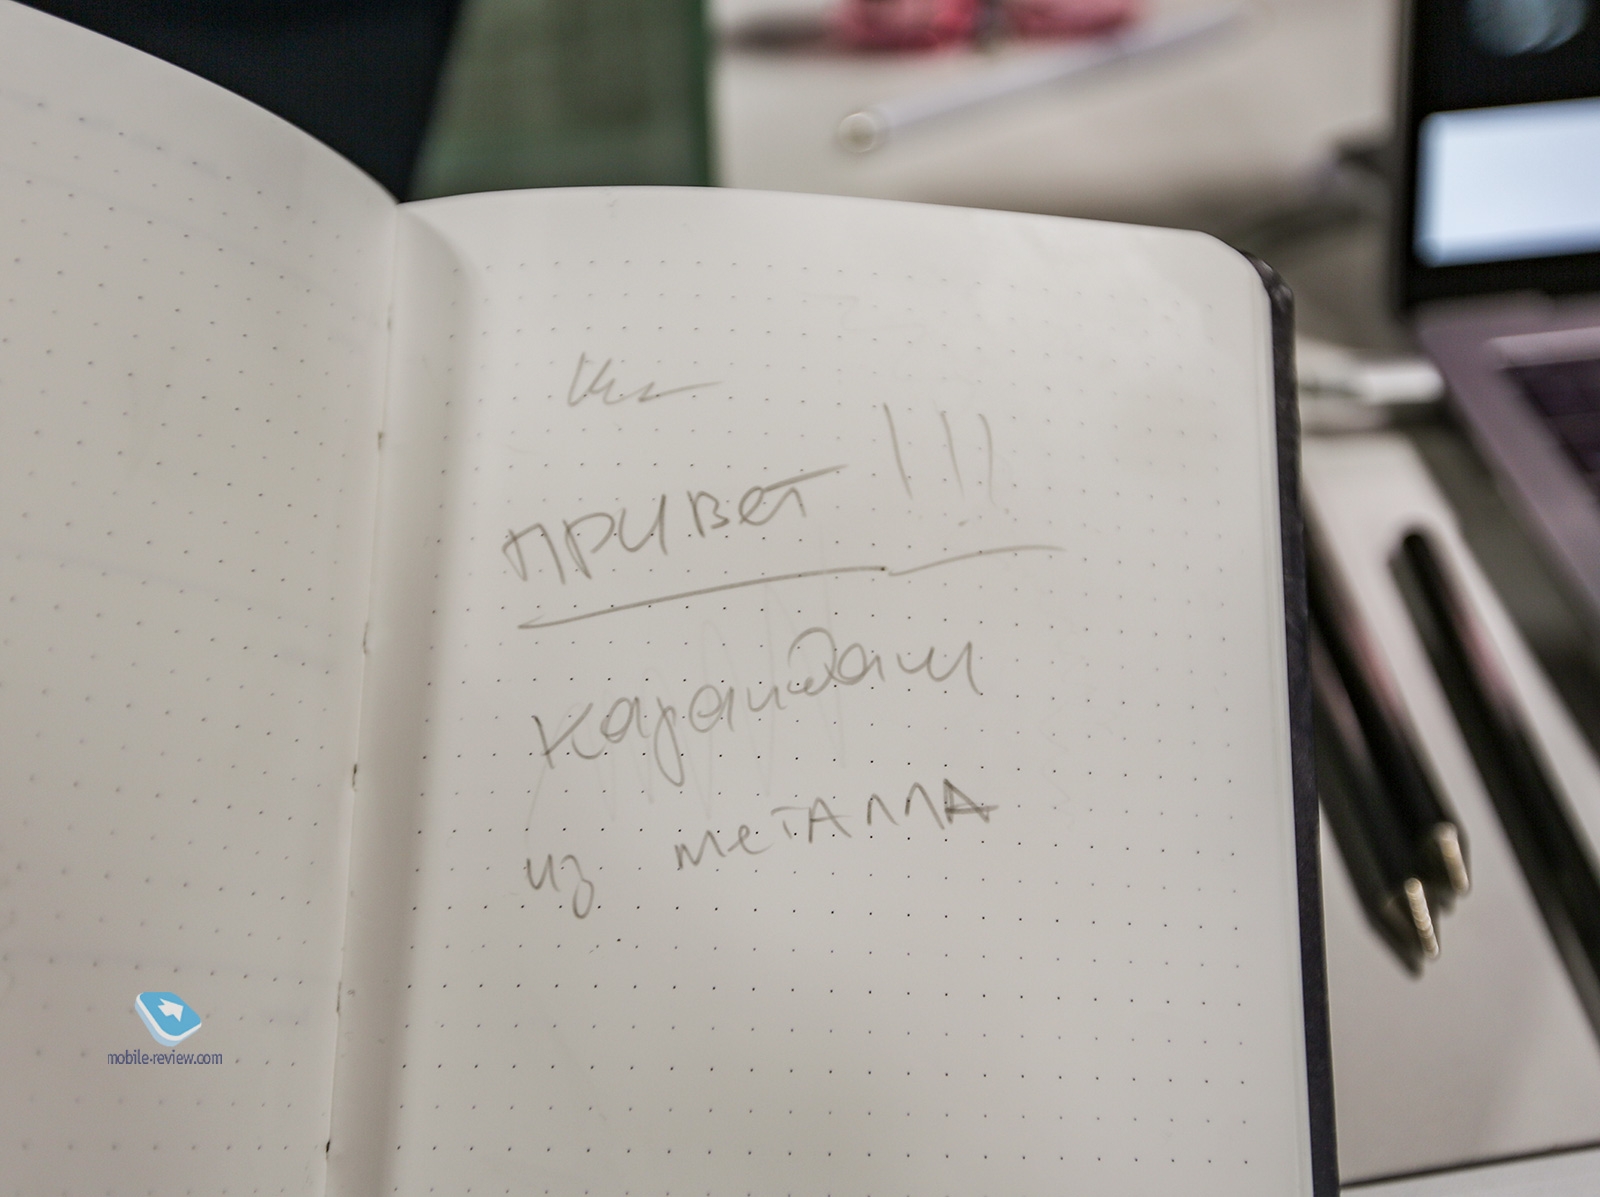 привет!!!
карандаш
из металла
mobile-review.com